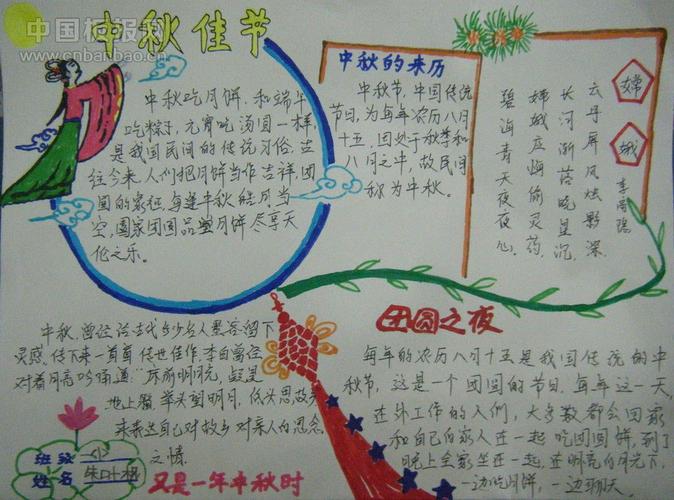 中国板报网
www.cnbanbao.cn
中秋佳节
中秋吃月饼,和端午
吃粽子,元宵吃汤圆一样,
是我国民间的传统习俗,古
往今来,人们把月饼当作吉祥,团
圆的象征,每逢中秋皓月当
空,阖家团圆品尝月饼尽享天
伦之乐。
中秋的来历
中秋节,中国传统
节日,为每年农历八月
十五,因处于秋季和
八月之中,故民间
称为中秋。
嫦娥
李商隐
云母屏风烛影深,
长河渐落晓星沉,
嫦娥应悔偷灵药,
碧海青天夜夜心。
中秋,曾经给古代多少名人墨客留下
灵感,传下来一首首传世佳作,李白曾经
对着月亮吟诵道:“床前明月光,疑是
地上霜,举头望明月,低头思故乡
来表达自己对故乡对亲人的思念
之情
班级
姓名
又是一年中秋时
团圆之夜
每年的农历八月十五是我国传统的中
秋节,这是一个团圆的节日,每年这一天,
在外工作的人们,大多数都会回家
和自己的家人在一起吃团圆饼,到了
晚上全家坐在一起,在明亮的月光下,
一边吃月饼,一边聊天